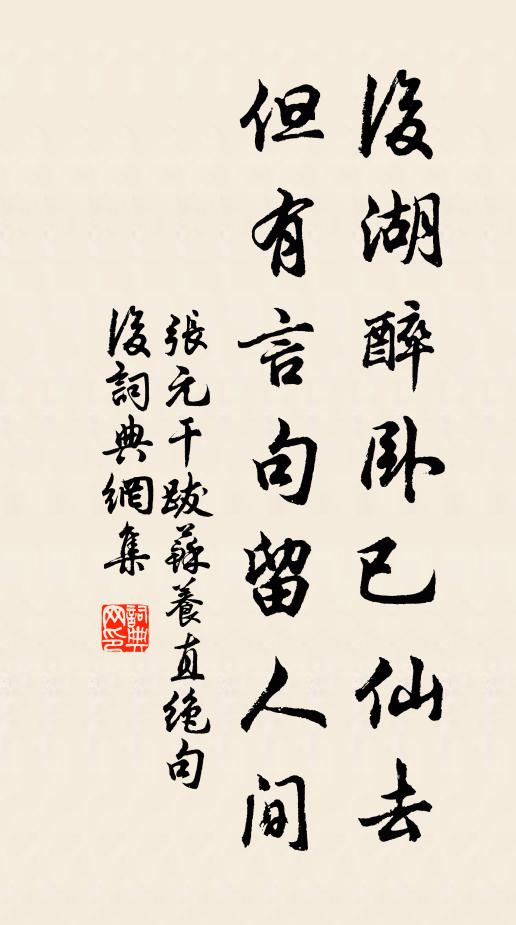 後湖醉卧已仙去
但有言句留人間
張元干跋蘇養直絶句
後詞典網集
詞典网印